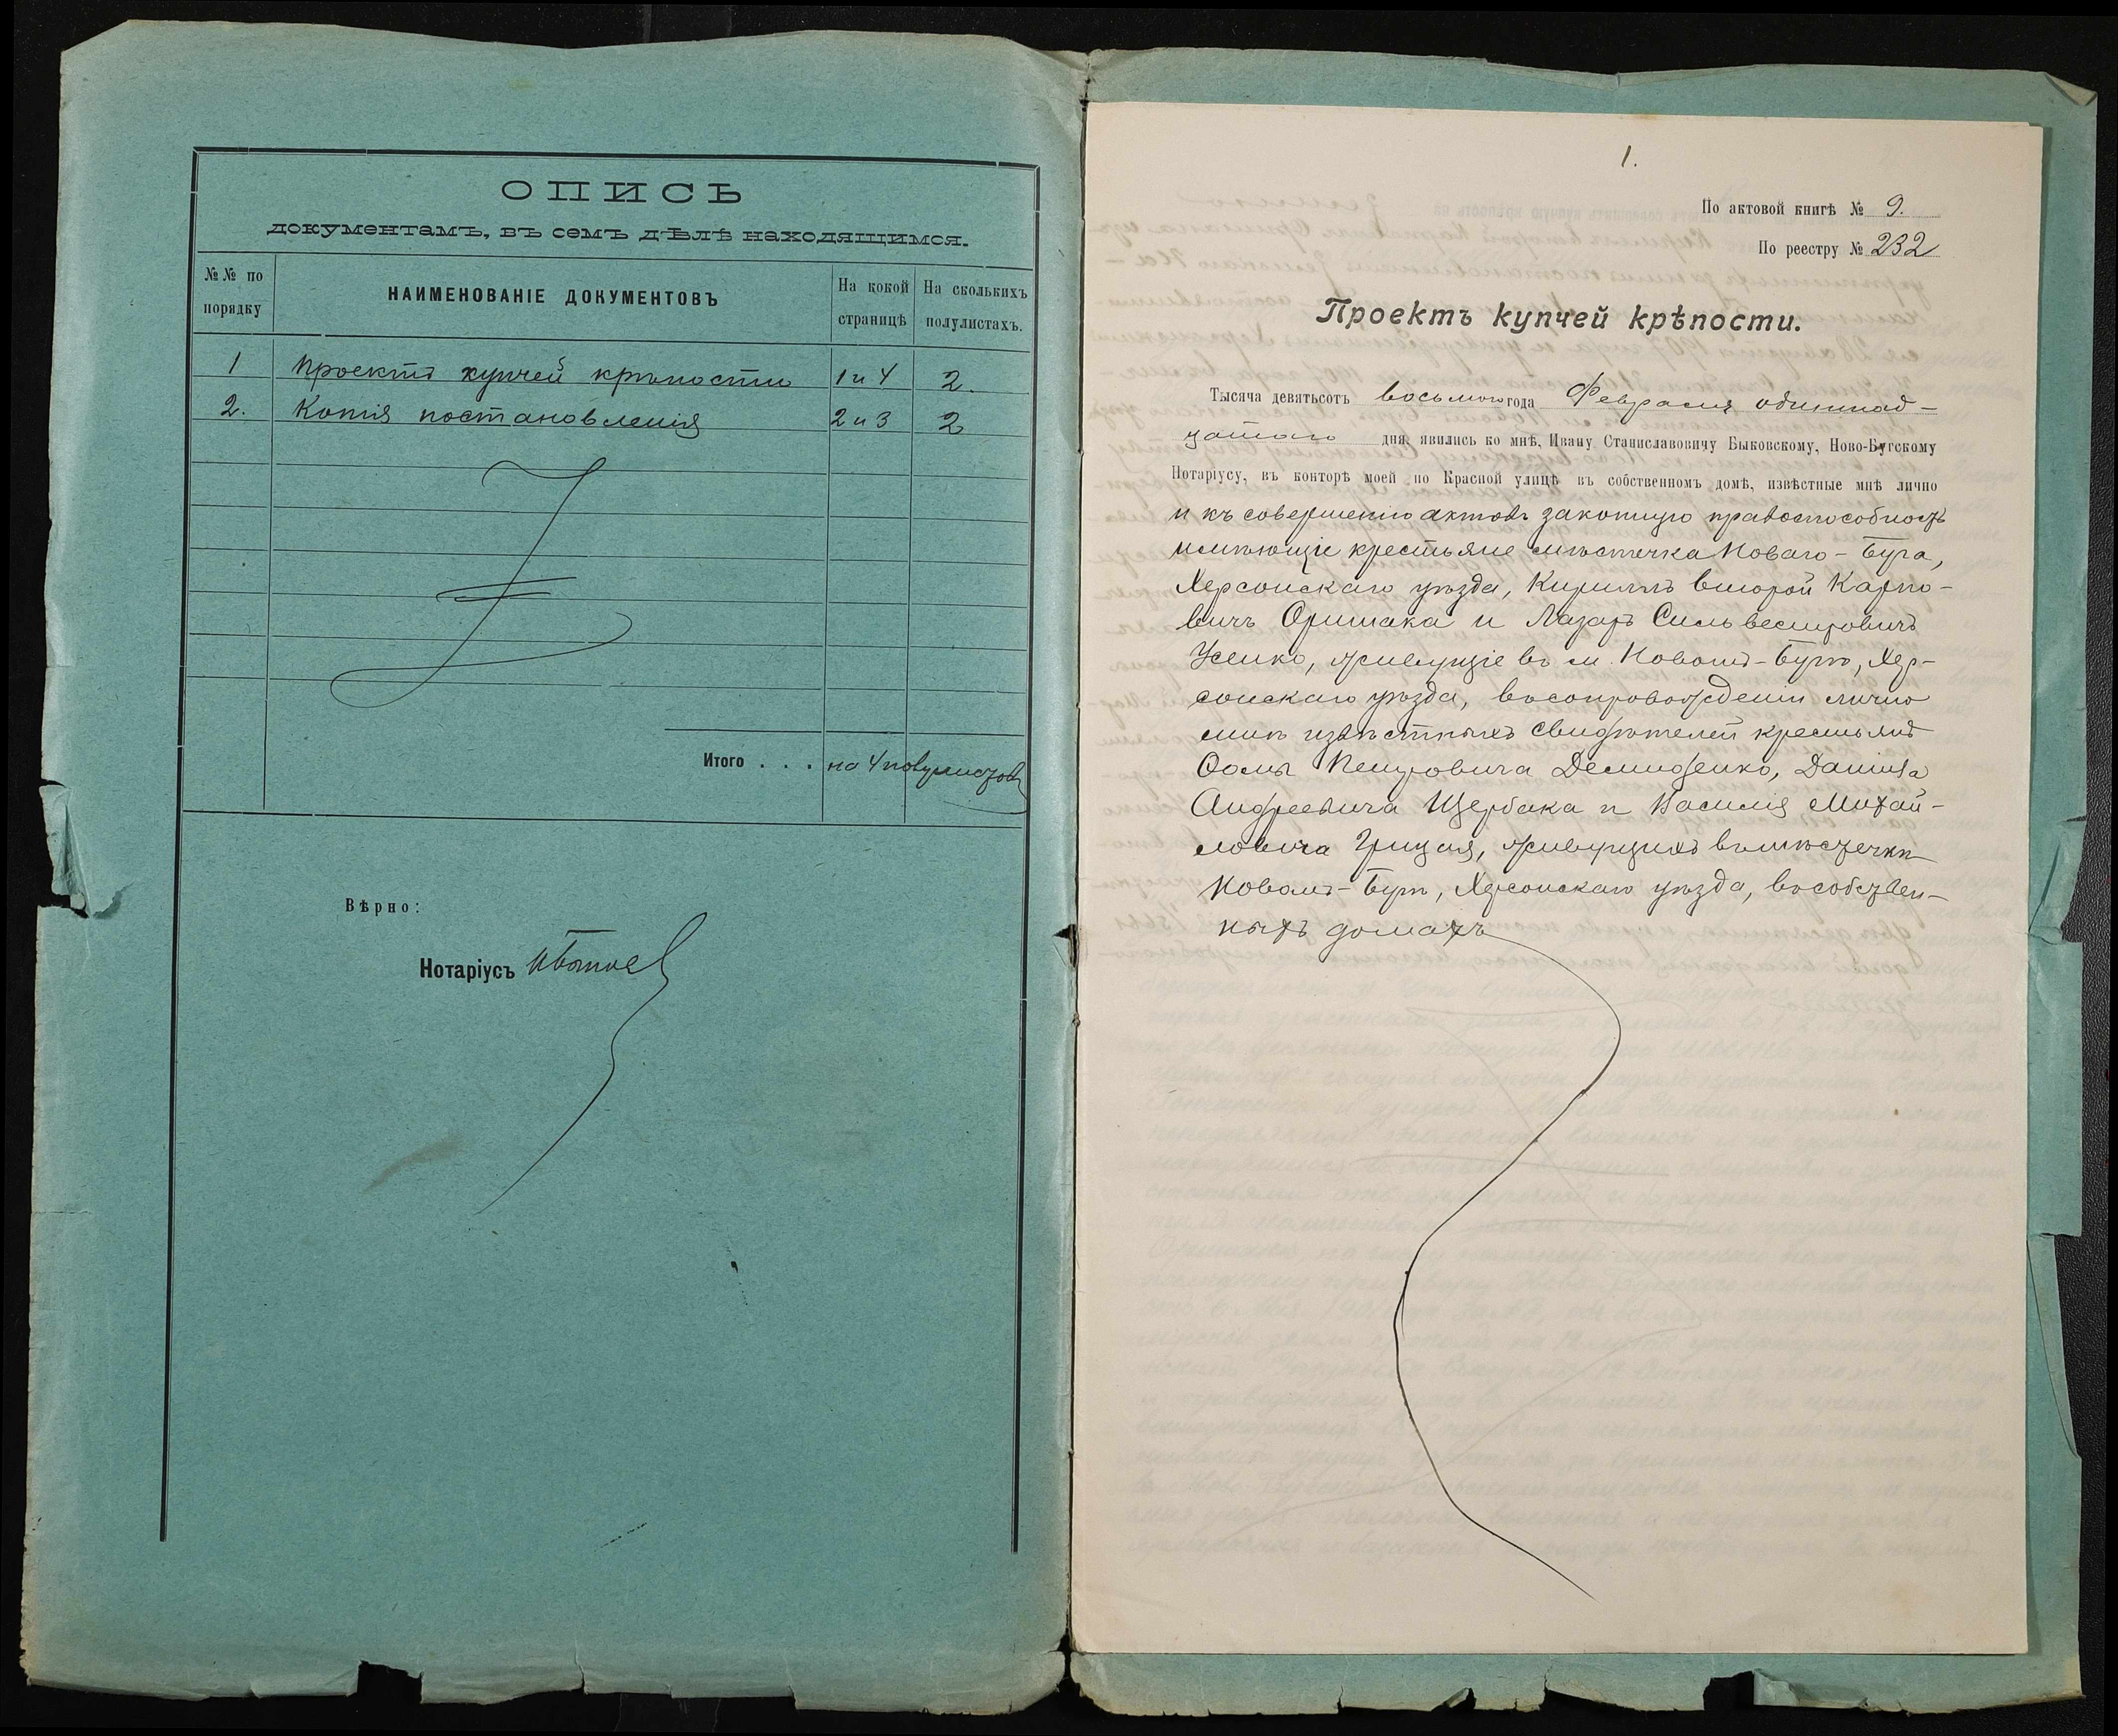 ОПИСЬ
документамъ, въ семъ дѣлѣ находящимся.
№№ по порядку
НАИМЕНОВАНІЕ ДОКУМЕНТОВЪ
На кокой страницѣ
На сколькихъ полулистахъ.
1 Проектъ купчей крѣпости 1 и 4 2.
2. Копія постановленія 2 и 3 2
Итого . . . на 4 полулистахъ
Вѣрно:
Нотаріусъ
1.
По актовой книгѣ № 9.
По реестру № 232
Проектъ купчей крѣпости.
Тысяча девятьсотъ восьмого года Февраля одиннад-
цатаго дня, явились ко мнѣ, Ивану Станиславовичу Быковскому, Ново-Бугскому
Нотаріусу, въ конторѣ моей по Красной улицѣ въ собственномъ домѣ, извѣстные мнѣ лично
и къ совершенію актовъ законную правоспособность
имѣющіе крестьяне мѣстечка Новаго-Буга,
Херсонскаго уѣзда, Кириллъ второй Карпо-
вичъ Оришака и Лазарь Сильвестровичъ
Усенко, живущіе въ м. Новомъ-Бугѣ, Хер-
сонскаго уѣзда, въ сопровожденіи лично
мнѣ извѣстныхъ свидѣтелей крестьянъ
Ѳомы Петровича Демиденко, Даніила
Андреевича Щербака и Василія Михай-
ловича Грицая, живущихъ въ мѣстечкѣ
Новомъ-Бугѣ, Херсонскаго уѣзда, въ собствен-
ныхъ домахъ